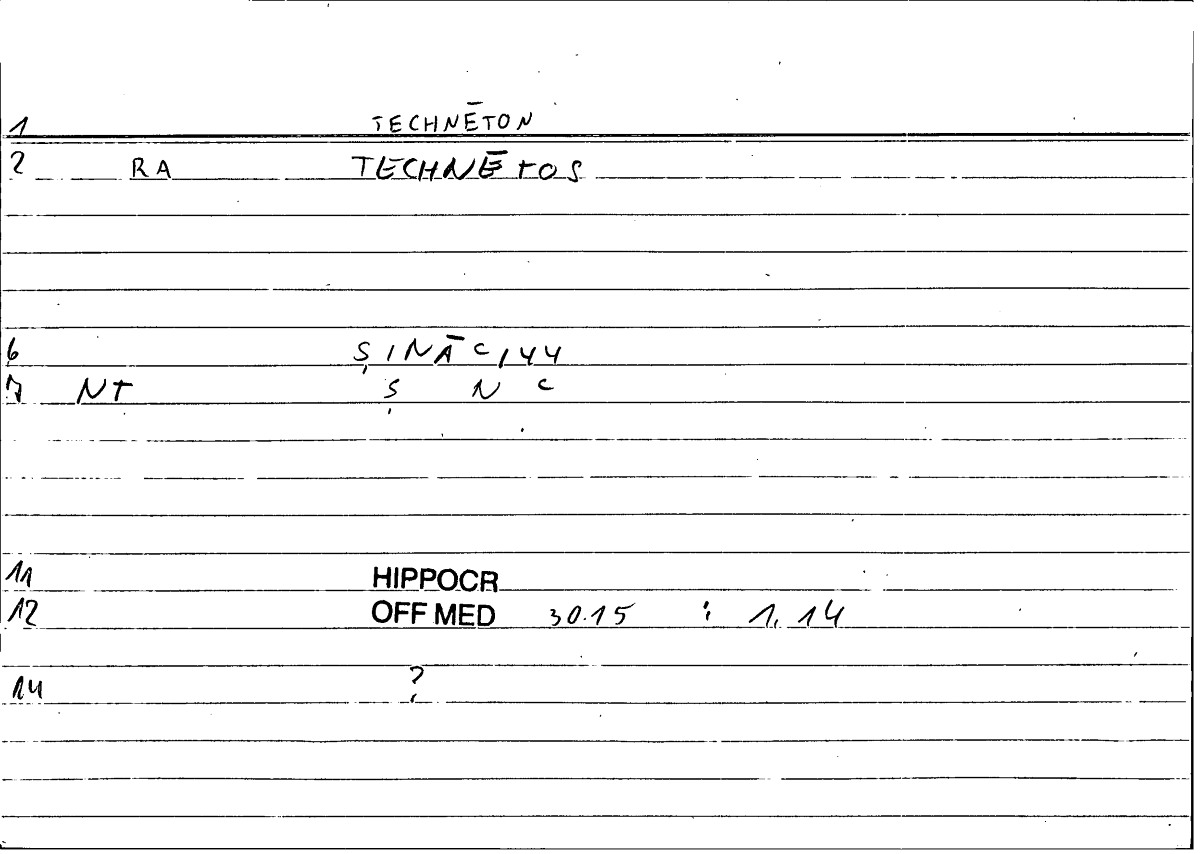 1 TECHNĒTON
2 RA TECHNĒTOS
6 ṢINĀʿIYY
7 NT Ṣ N ʿ
11 HIPPOCR
12 OFF MED 30.15 : 1, 14
14 ?